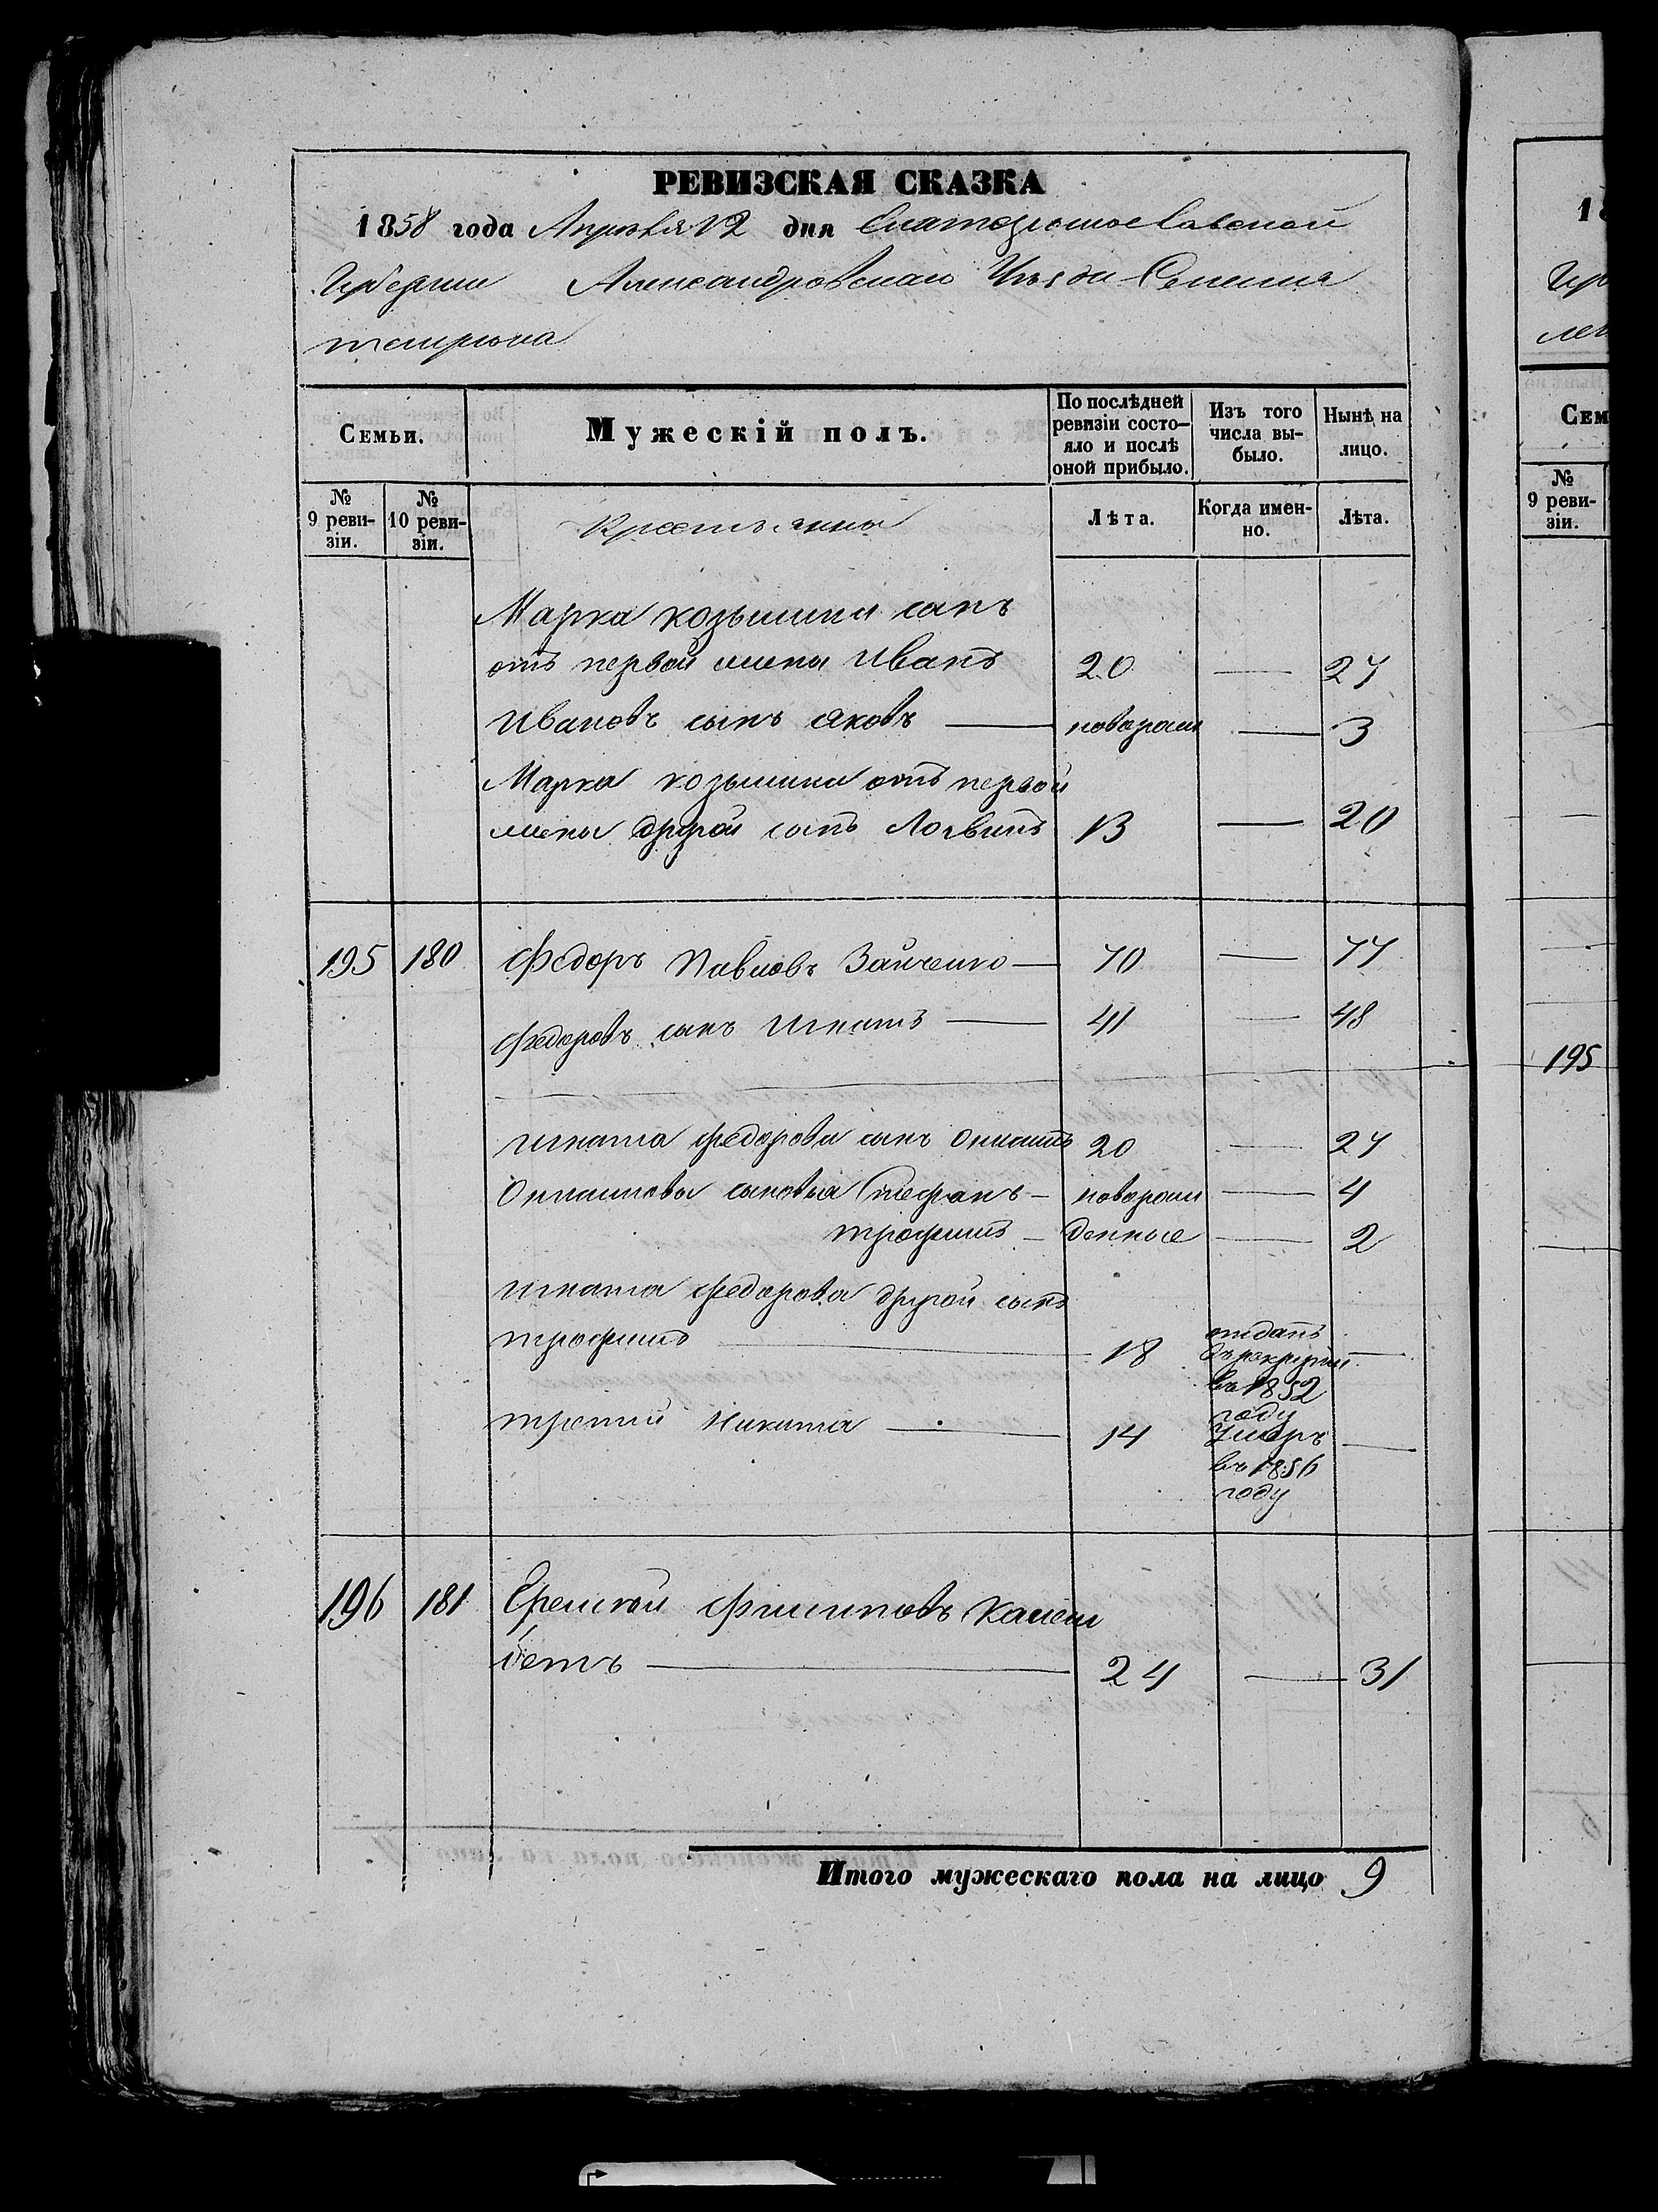 РЕВИЗСКАЯ СКАЗКА
1858 года Апреля 12 дня Екатеринославской
Губернии Александровскаго Уѣзда Селения
темрюка
Семьи.
Мужескій полъ.
По послѣдней ревизіи состо-
яло и послѣ
оной прибыло.
Изъ того
числа вы-
было.
Нынѣ на
лицо.
№
9 реви-
зіи.
№
10 реви-
зіи.
Крестьянно
Лѣта.
Когда имен-
но.
Лѣта.
Марка козьмина сынъ
отъ первой жены Иванъ 20 — 27
Ивановъ сынъ яковъ — новорож — 3
Марка козьмина отъ первой
жены другой сынъ Логвинъ 13 — 20
195 180 Федоръ Павловъ Зайченко — 70 — 77
Федоровъ сынъ Игнатъ — 41 — 48
Игната федорова сынъ 20 — 27
сыновья Стефанъ — новорож — 4
трофимъ — денные — 2
Игната федорова другой сынъ
трофимъ — 18 отданъ —
въ рекруты
въ 1852
году
третий Никита — 14 Умеръ —
въ 1856
году
196 181 Ефемкой Филиповъ
24 — 31
Итого мужескаго пола на лицо 9
18
Сем
№
9 реви-
зіи.
195